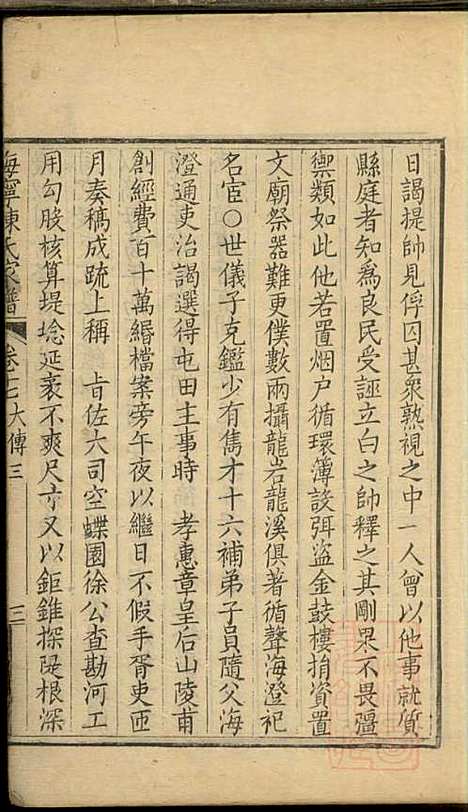 日謁提帥見俘囚甚衆熟視之中一人曾以他事就質
縣庭者知爲良民受誣立白之帥釋之其剛果不畏彊
禦類如此他若置烟户循環簿設弭盜金鼓樓捐資置
文廟祭器難更僕數兩攝龍岩龍溪俱著循聲海澄祀
名宦○世儀子克鑑少有雋才十六補弟子員隨父海
澄通吏治謁選得屯田主事時　孝惠章皇后山陵甫
創經費百十萬緡檔案旁午夜以繼日不假手胥吏匝
月奏稿成疏上稱　旨佐大司空蝶園徐公查勘河工
用勾股核算堤埝延袤不爽尺寸又以鉅錐探隄根深
海寧陳氏家譜　卷十七大傳三　三